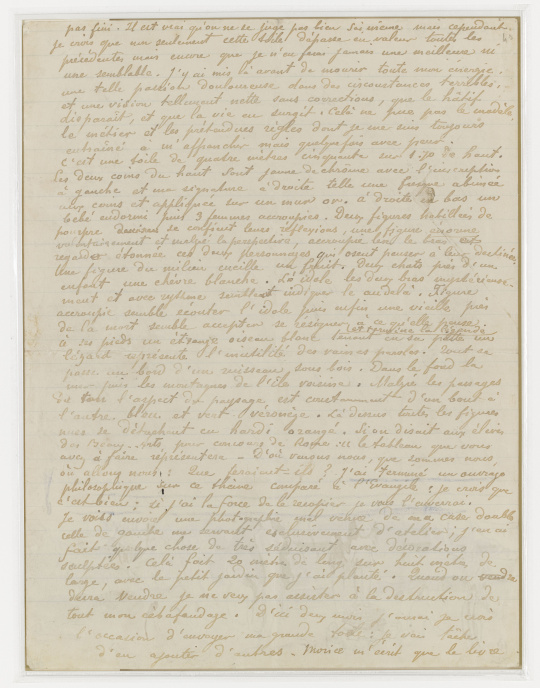 pas fini. Il est vrai qu'on ne se juge pas bien soi même mais cependant
je crois que non seulement cette toile dépasse en valeur toutes les
précédentes mais encore que je n'en ferai jamais une meilleure ni
une semblable. J'y ai mis là avant de mourir toute mon énergie
une telle passion douloureuse dans des circonstances terribles,
et une vision tellement nette sans corrections, que le hâtif
disparaît, et que la vie en surgit. Cela ne pue pas le modèle,
le métier et les prétendues règles dont je me suis toujours
affranchi mais quelquefois avec peur.
C'est une toile de quatre mètres cinquante sur 1.70 de haut.
Les deux coins du haut sont jaune de chrôme avec l'inscription
à gauche et ma signature à droite telle une fresque abimée
aux coins et appliquée sur un mur or. à droite en bas un
bébé endormi puis 3 femmes accroupies. Deux figures habillées de
pourpre se confient leurs réflexions, une figure enorme
volontairement et malgré la perspective, accroupie lève le bras
regarde étonnée ces deux personnages qui osent penser à leur destinée
Une figure du milieu cueille un fruit. Deux chats près d'un
enfant une chèvre blanche. L'idole les deux bras mystérieuse-
ment et avec rythme semble indiquer l'au delà. Figure
accroupie semble ecouter l'idole puis enfin une vieille près
de la mort semble accepter se resigner à ce qu'elle pense
et termine la légende
à ses pieds un étrange oiseau blanc tenant en sa patte un
lézard représente l'inutilité des vaines paroles. Tout se
passe au bord d'un ruisseau sous bois. Dans le fond la
mer puis les montagnes de l'île voisine. Malgré les passages
de tons l'aspect du paysage est constamment d'un bout à
l'autre bleu et vert véronèse. Là dessus toutes les figures
nues se détachent en hardi orangé. Si on disait aux élèves
des Beaux-Arts pour concours de Rome: le tableau que vous
avez à faire représentera — D'où venons nous, que sommes nous,
où allons nous: Que feraient-ils? J'ai terminé un ouvrage
philosophique sur ce thème comparé à l'Evangile; je crois que
c'est bien; si j'ai la force de le recopier je vous l'enverrai.
Je voulais envoyer une photographie mal venue de ma case double
celle de gauche me servait exclusivement d'atelier; j'en ai
fait quelque chose de très séduisant avec décorations
sculptées. Cela fait 20 mètres de long sur huit mètres de
large, avec le petit jardin que j'ai planté. Quand on
devra vendre je ne veux pas assister à la destruction de
tout mon échafaudage. D'ici deux mois, j'aurai je crois
l'occasion d'envoyer ma grande toile: je vais tâcher
d'en ajouter d'autres — Morice m'écrit que le livre